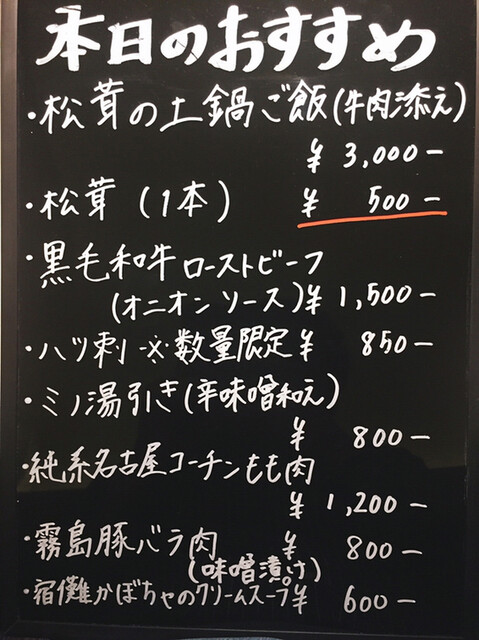 本日のおすすめ
・松茸の土鍋ご飯(牛肉添え)
¥ 3,000-
・松茸 (1本) ¥ 500-
・黒毛和牛ローストビーフ
(オニオンソース)¥ 1,500-
・ハツ刺 ※数量限定 ¥ 850-
・ミノ湯引き(辛味噌和え)
¥ 800-
・純系名古屋コーチンもも肉
¥ 1,200-
・霧島豚バラ肉 ¥ 800-
(味噌漬け)
・宿儺かぼちゃのクリームスープ¥ 600-